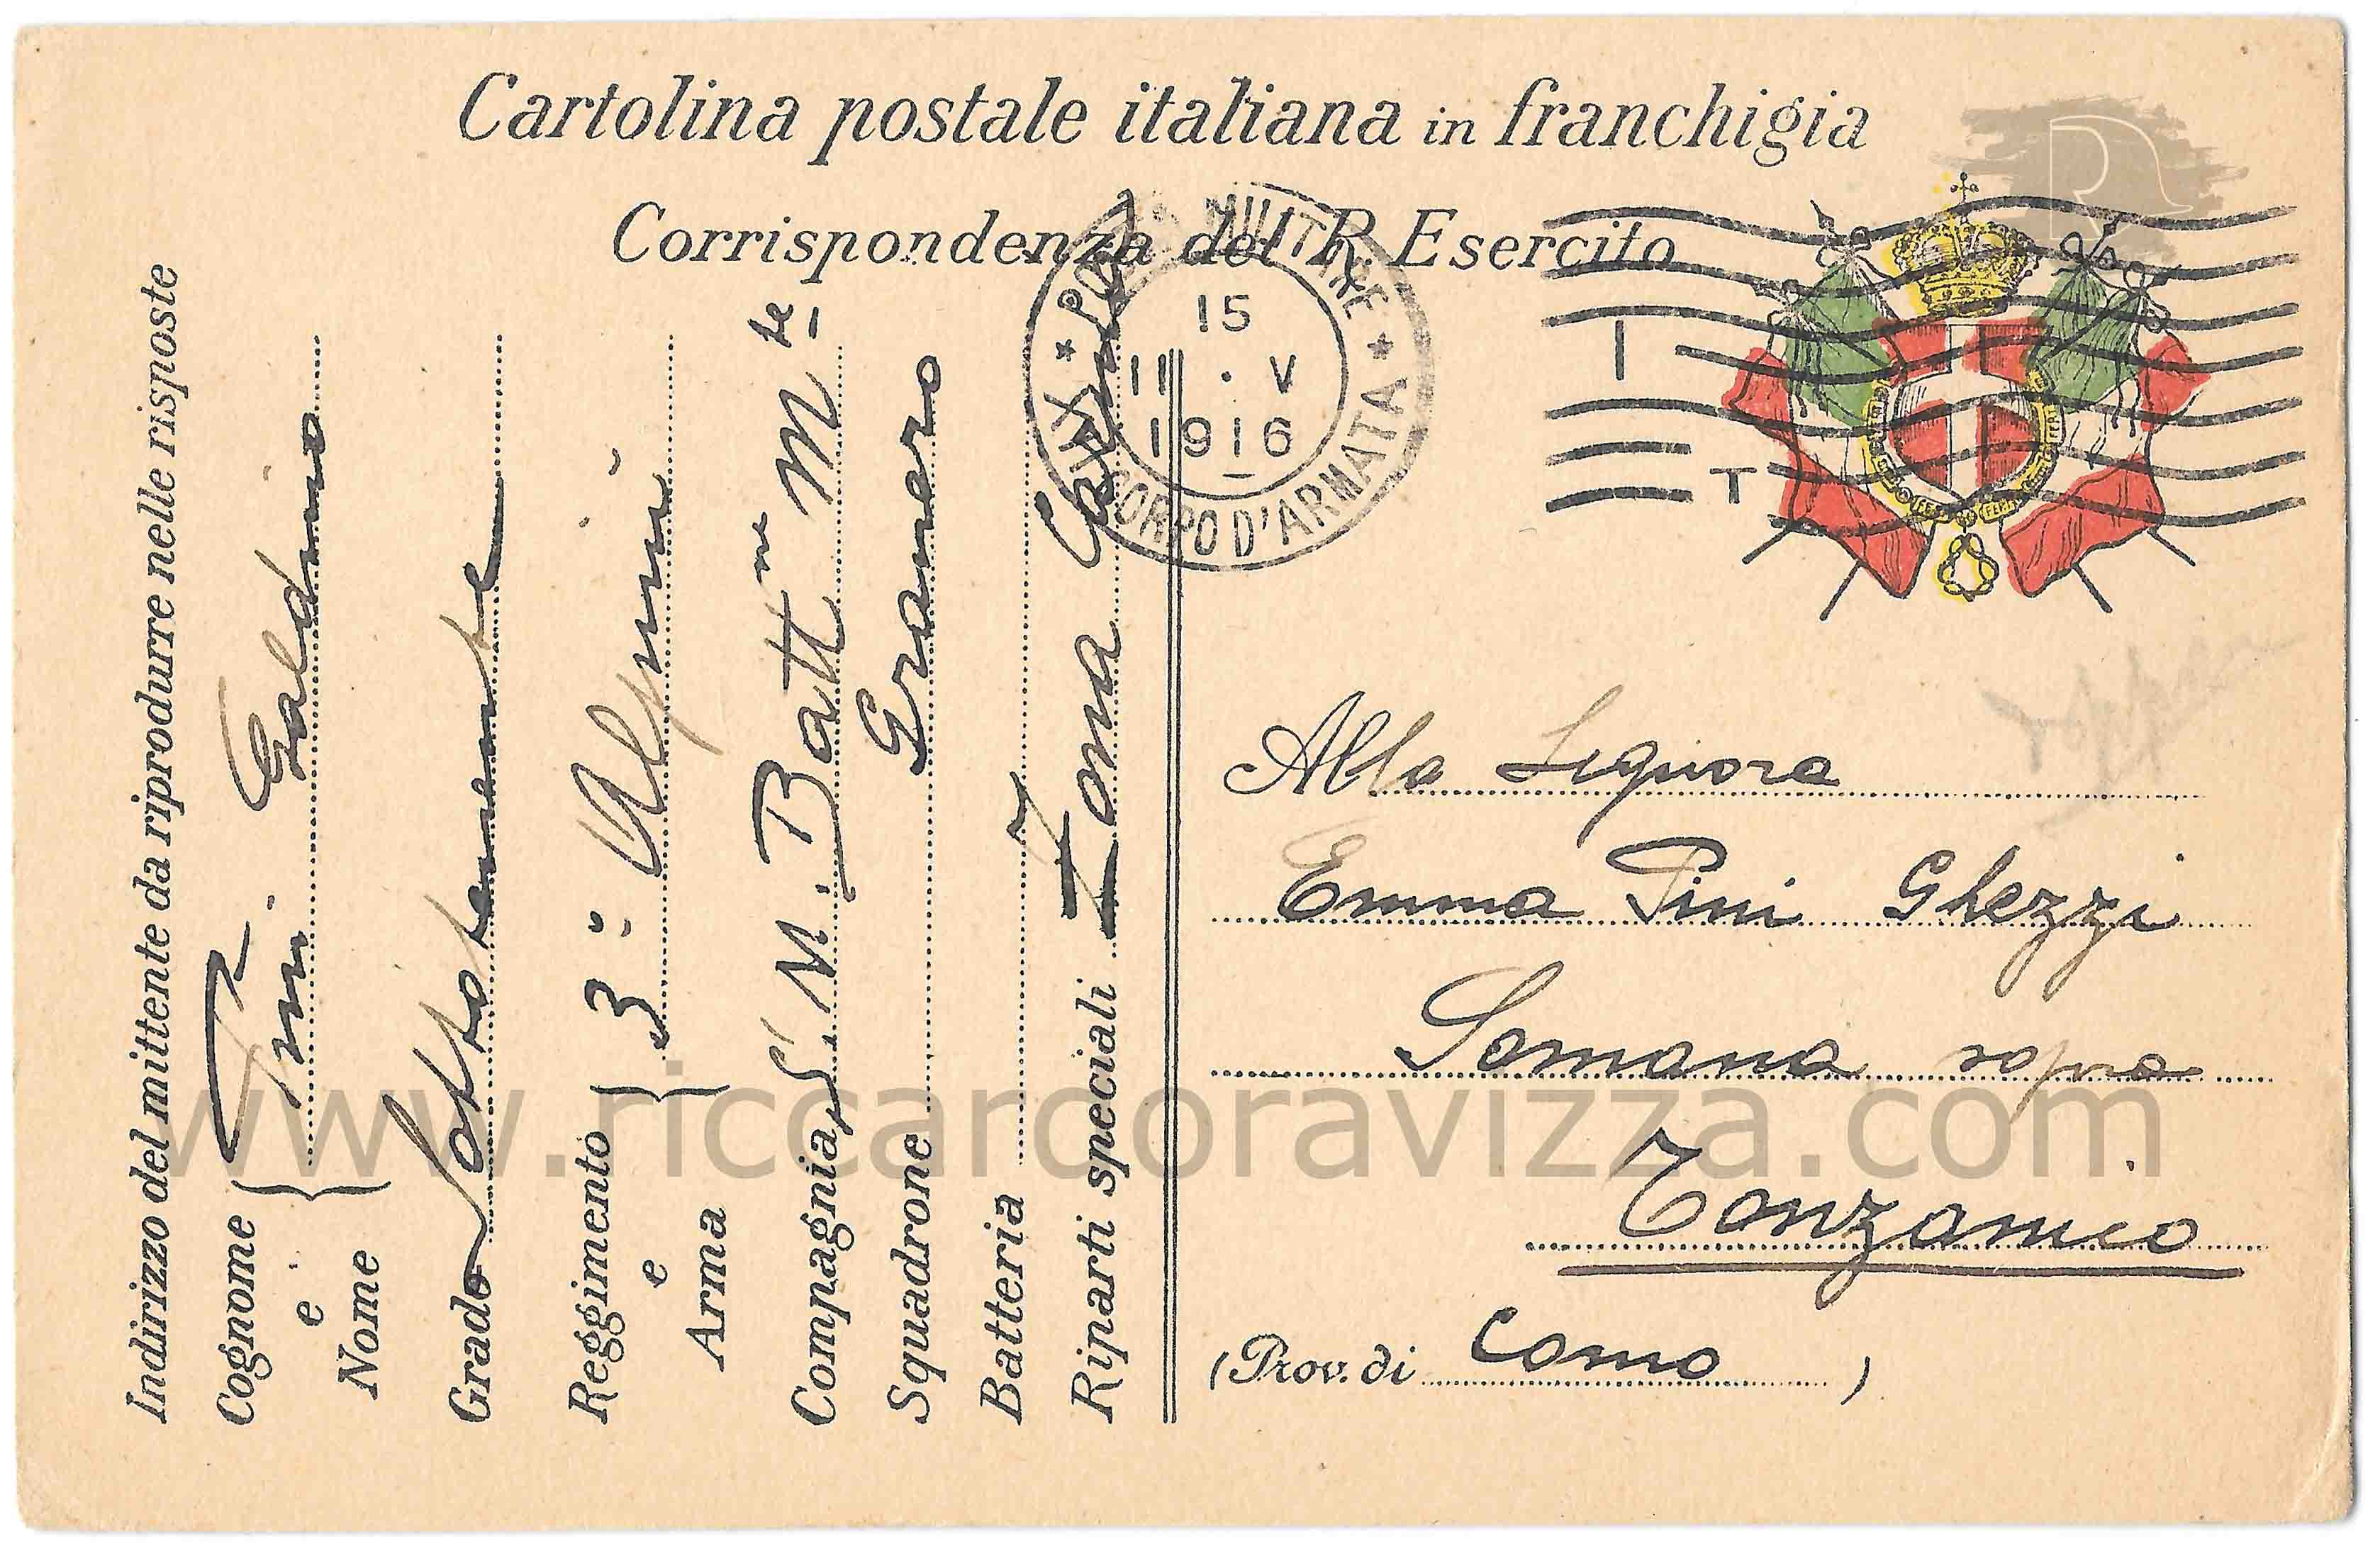 Cartolina postale italiana in franchigia
Corrispondenza del R. Esercito
POSTA MILITARE
15
11 . V
1916
CORPO D'ARMATA
I
T
FERT FERT
Indirizzo del mittente da riprodurre nelle risposte
Cognome e Nome { Pini Galdino
Grado Sottotenente
Reggimento e Arma } 3° Alpini
Compagnia S. M. Battne Mte
Squadrone Granero
Batteria
Riparti speciali Zona Carnia
Alla Signora
Emma Pini Ghezzi
Somana sopra
Tonzanico
(Prov. di Como )
R
www.riccardoravizza.com